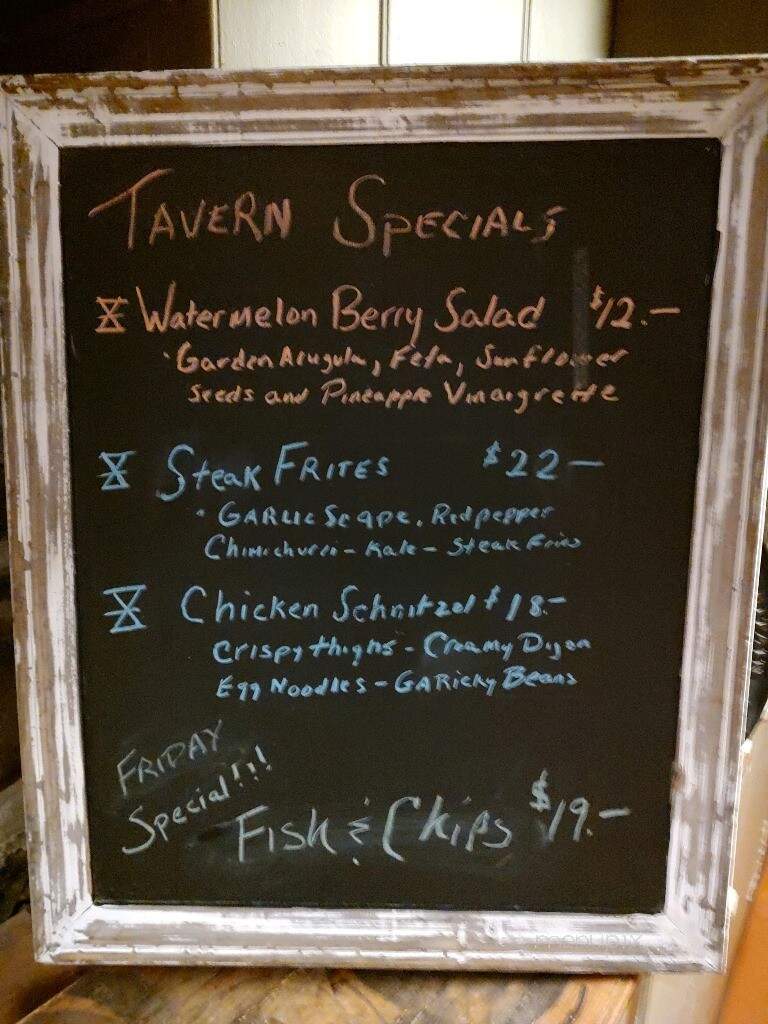 TAVERN SPECIALS
Watermelon Berry Salad $12.—
· Garden Arugula, Feta, Sunflower
Seeds and Pineapple Vinaigrette
Steak FRITES $22—
· GARLIC Scape. Redpepper
Chimichurri - Kale - Steak Fries
Chicken Schnitzel $18.-
Crispy thighs - Creamy Dijon
Egg Noodles - GARlicky Beans
FRIDAY
Special!!!
Fish & Chips $19.—
menupix